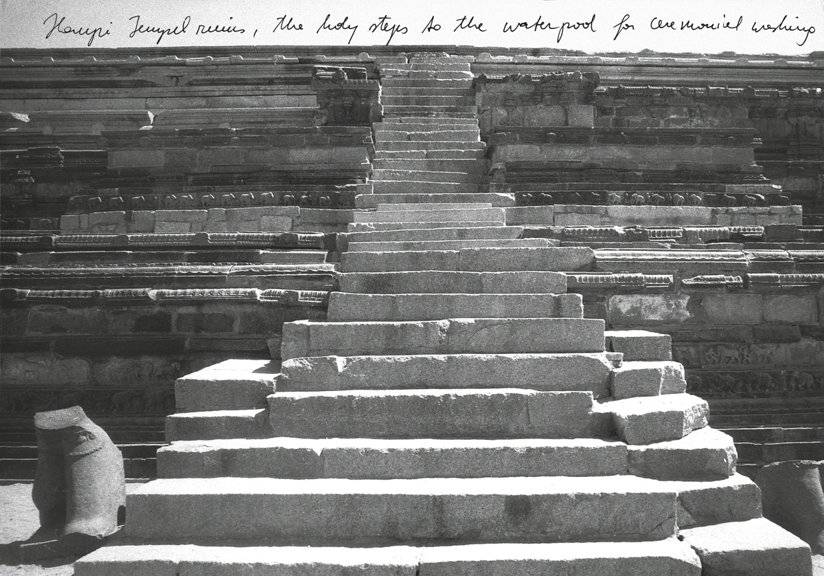 Hampi Tempel ruins, the holy steps to the waterpool for ceremonial washing